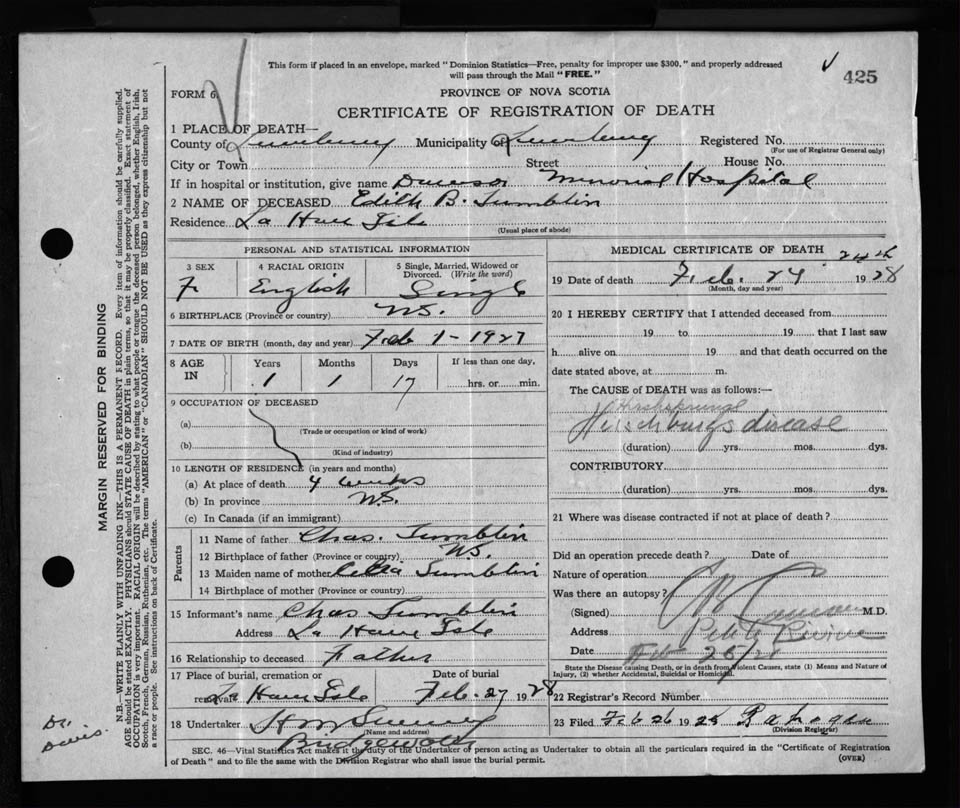 This form if placed in an envelope, marked "Dominion Statistics—Free, penalty for improper use $300," and properly addressed
will pass through the Mail "FREE."
425
FORM 6
PROVINCE OF NOVA SCOTIA
CERTIFICATE OF REGISTRATION OF DEATH
1 PLACE OF DEATH—
County of Lunenburg Municipality of Lunenburg Registered No.
(For use of Registrar General only)
City or Town Street House No.
If in hospital or institution, give name Dawson Memorial Hospital
2 NAME OF DECEASED Edith B. Tumblin
Residence La Have Isle
(Usual place of abode)
PERSONAL AND STATISTICAL INFORMATION
3 SEX 4 RACIAL ORIGIN 5 Single, Married, Widowed or Divorced. (Write the word)
F English Single
6 BIRTHPLACE (Province or country) N.S.
7 DATE OF BIRTH (month, day and year) Feb 1 - 1927
8 AGE IN Years Months Days If less than one day,
1 1 17 hrs. or min.
9 OCCUPATION OF DECEASED
(a)
(Trade or occupation or kind of work)
(b)
(Kind of industry)
10 LENGTH OF RESIDENCE (in years and months)
(a) At place of death 4 weeks
(b) In province N.S.
(c) In Canada (if an immigrant)
Parents
11 Name of father Chas. Tumblin
12 Birthplace of father (Province or country) N.S.
13 Maiden name of mother Celia Tumblin
14 Birthplace of mother (Province or country)
15 Informant's name Chas Tumblin
Address La Have Isle
16 Relationship to deceased Father
17 Place of burial, cremation or removal Date of burial
La Have Isle Feb. 27 1928
18 Undertaker
(Name and address)
Bridgewater
MEDICAL CERTIFICATE OF DEATH
24th
19 Date of death Feb. 24 1928
(Month, day and year)
20 I HEREBY CERTIFY that I attended deceased from
19 to 19 that I last saw
h alive on 19 and that death occurred on the
date stated above, at m.
The CAUSE of DEATH was as follows:—
Hirschsprungs
disease
(duration) yrs. mos. dys.
CONTRIBUTORY
(duration) yrs. mos. dys.
21 Where was disease contracted if not at place of death?
Did an operation precede death? Date of
Nature of operation
Was there an autopsy?
(Signed) M.D.
Address Petite Riviere
Date Feb 26/28
State the Disease causing Death, or in death from Violent Causes, state (1) Means and Nature of
Injury, (2) whether Accidental, Suicidal or Homicidal.
22 Registrar's Record Number
23 Filed Feb 26 1928
(Division Registrar)
SEC. 46—Vital Statistics Act makes it the duty of the Undertaker of person acting as Undertaker to obtain all the particulars required in the "Certificate of Registration
of Death" and to file the same with the Division Registrar who shall issue the burial permit.
(OVER)
MARGIN RESERVED FOR BINDING
N.B.—WRITE PLAINLY, WITH UNFADING INK—THIS IS A PERMANENT RECORD. Every item of information should be carefully supplied.
AGE should be stated EXACTLY. PHYSICIANS should STATE CAUSE OF DEATH in plain terms, so that it may be properly classified. Exact statement of
OCCUPATION is very important. RACIAL ORIGIN will be described by stating to what people or tongue the deceased person belonged, whether English, Irish,
Scotch, French, German, Russian, Ruthenian, etc. The terms "AMERICAN" or "CANADIAN" SHOULD NOT BE USED as they express citizenship but not
a race or people. See instructions on back of Certificate.
Dr. Davis.